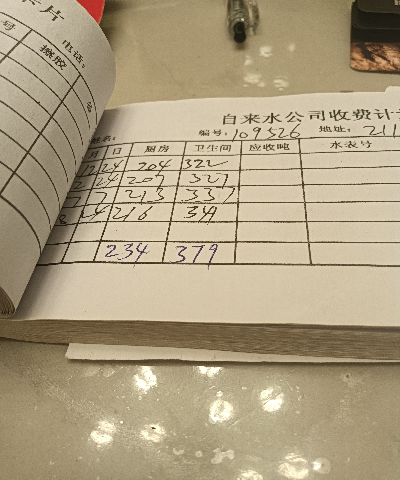 卡片
号
电话：
橡胶
自来水公司收费计
姓名：
编号：109526 地址：211
月 日 厨房 卫生间 应收吨 水表号
12 24 204 322
2 24 207 327
7 7 213 337
24 216 341
234 379